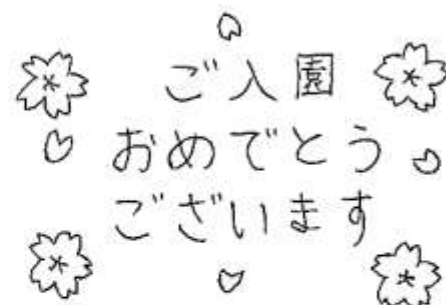 ご入園
おめでとう
ございます